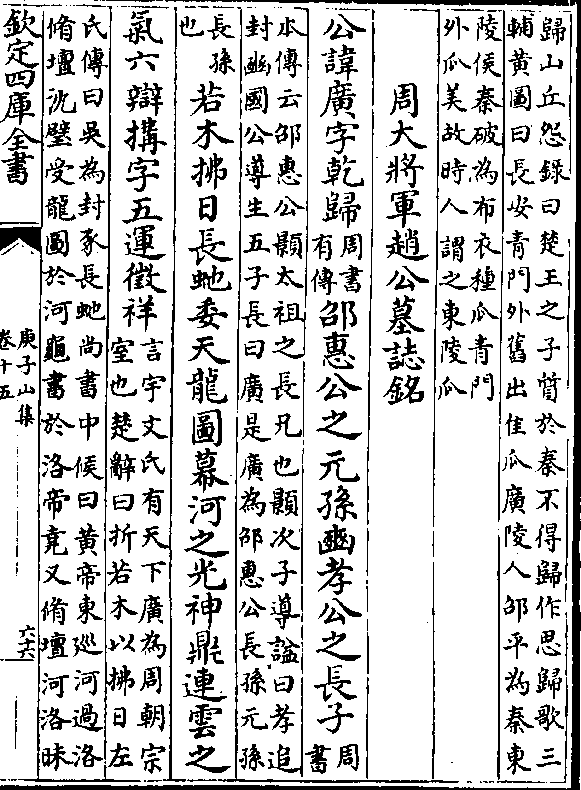 歸山丘怨錄曰楚王之子質於秦不得歸作思歸歌三
輔黃圖曰長安青門外舊出佳瓜廣陵人邵平為秦東
陵侯秦破為布衣種瓜青門
外瓜美故時人謂之東陵瓜
周大將軍趙公墓誌銘
公諱廣字乾歸周書有傳邵惠公之元孫豳孝公之長子周書
本傳云邵惠公顥太祖之長兄也顥次子導諡曰孝追
封豳國公導生五子長曰廣是廣為邵惠公長孫元孫
長孫也若木拂日長虵委天龍圖幕河之光神鼎連雲之
氣六辯搆字五運徵祥言宇文氏有天下廣為周朝宗
室也楚辭曰折若木以拂日左
氏傳曰吳為封豕長虵尚書中候曰黃帝東廵河過洛
脩壇沈璧受龍圖於河龜書於洛帝堯又脩壇河洛昧
欽定四庫全書
庾子山集
卷十五
六六